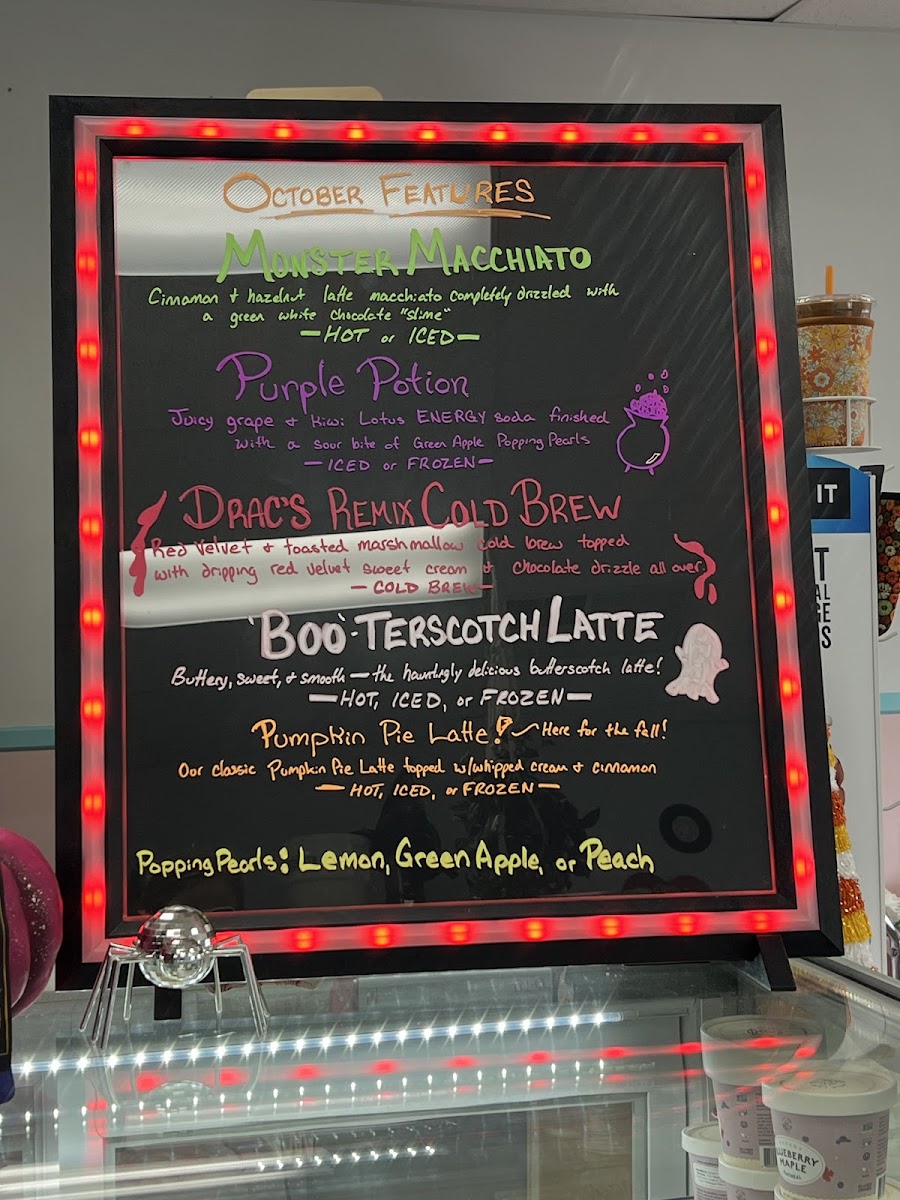 OCTOBER FEATURES
MONSTER MACCHIATO
Cinnamon + hazelnut latte macchiato completely drizzled with
a green white chocolate "slime"
—HOT or ICED—
Purple Potion
Juicy grape + kiwi Lotus ENERGY soda finished
with a sour bite of Green Apple Popping Pearls
—ICED or FROZEN—
DRAC'S REMIX COLD BREW
Red Velvet + toasted marshmallow cold brew topped
with dripping red velvet sweet cream + chocolate drizzle all over.
—COLD BREW—
'BOO'-TERSCOTCH LATTE
Buttery, sweet, + smooth — the hauntingly delicious butterscotch latte!
—HOT, ICED, or FROZEN—
Pumpkin Pie Latte! ~ Here for the fall!
Our classic Pumpkin Pie Latte topped w/whipped cream + cinnamon
—HOT, ICED, or FROZEN—
Popping Pearls: Lemon, Green Apple, or Peach
IT
UEBERRY
MAPLE